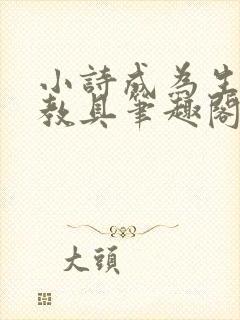 小詩成為生
教具筆趣閣
大頭